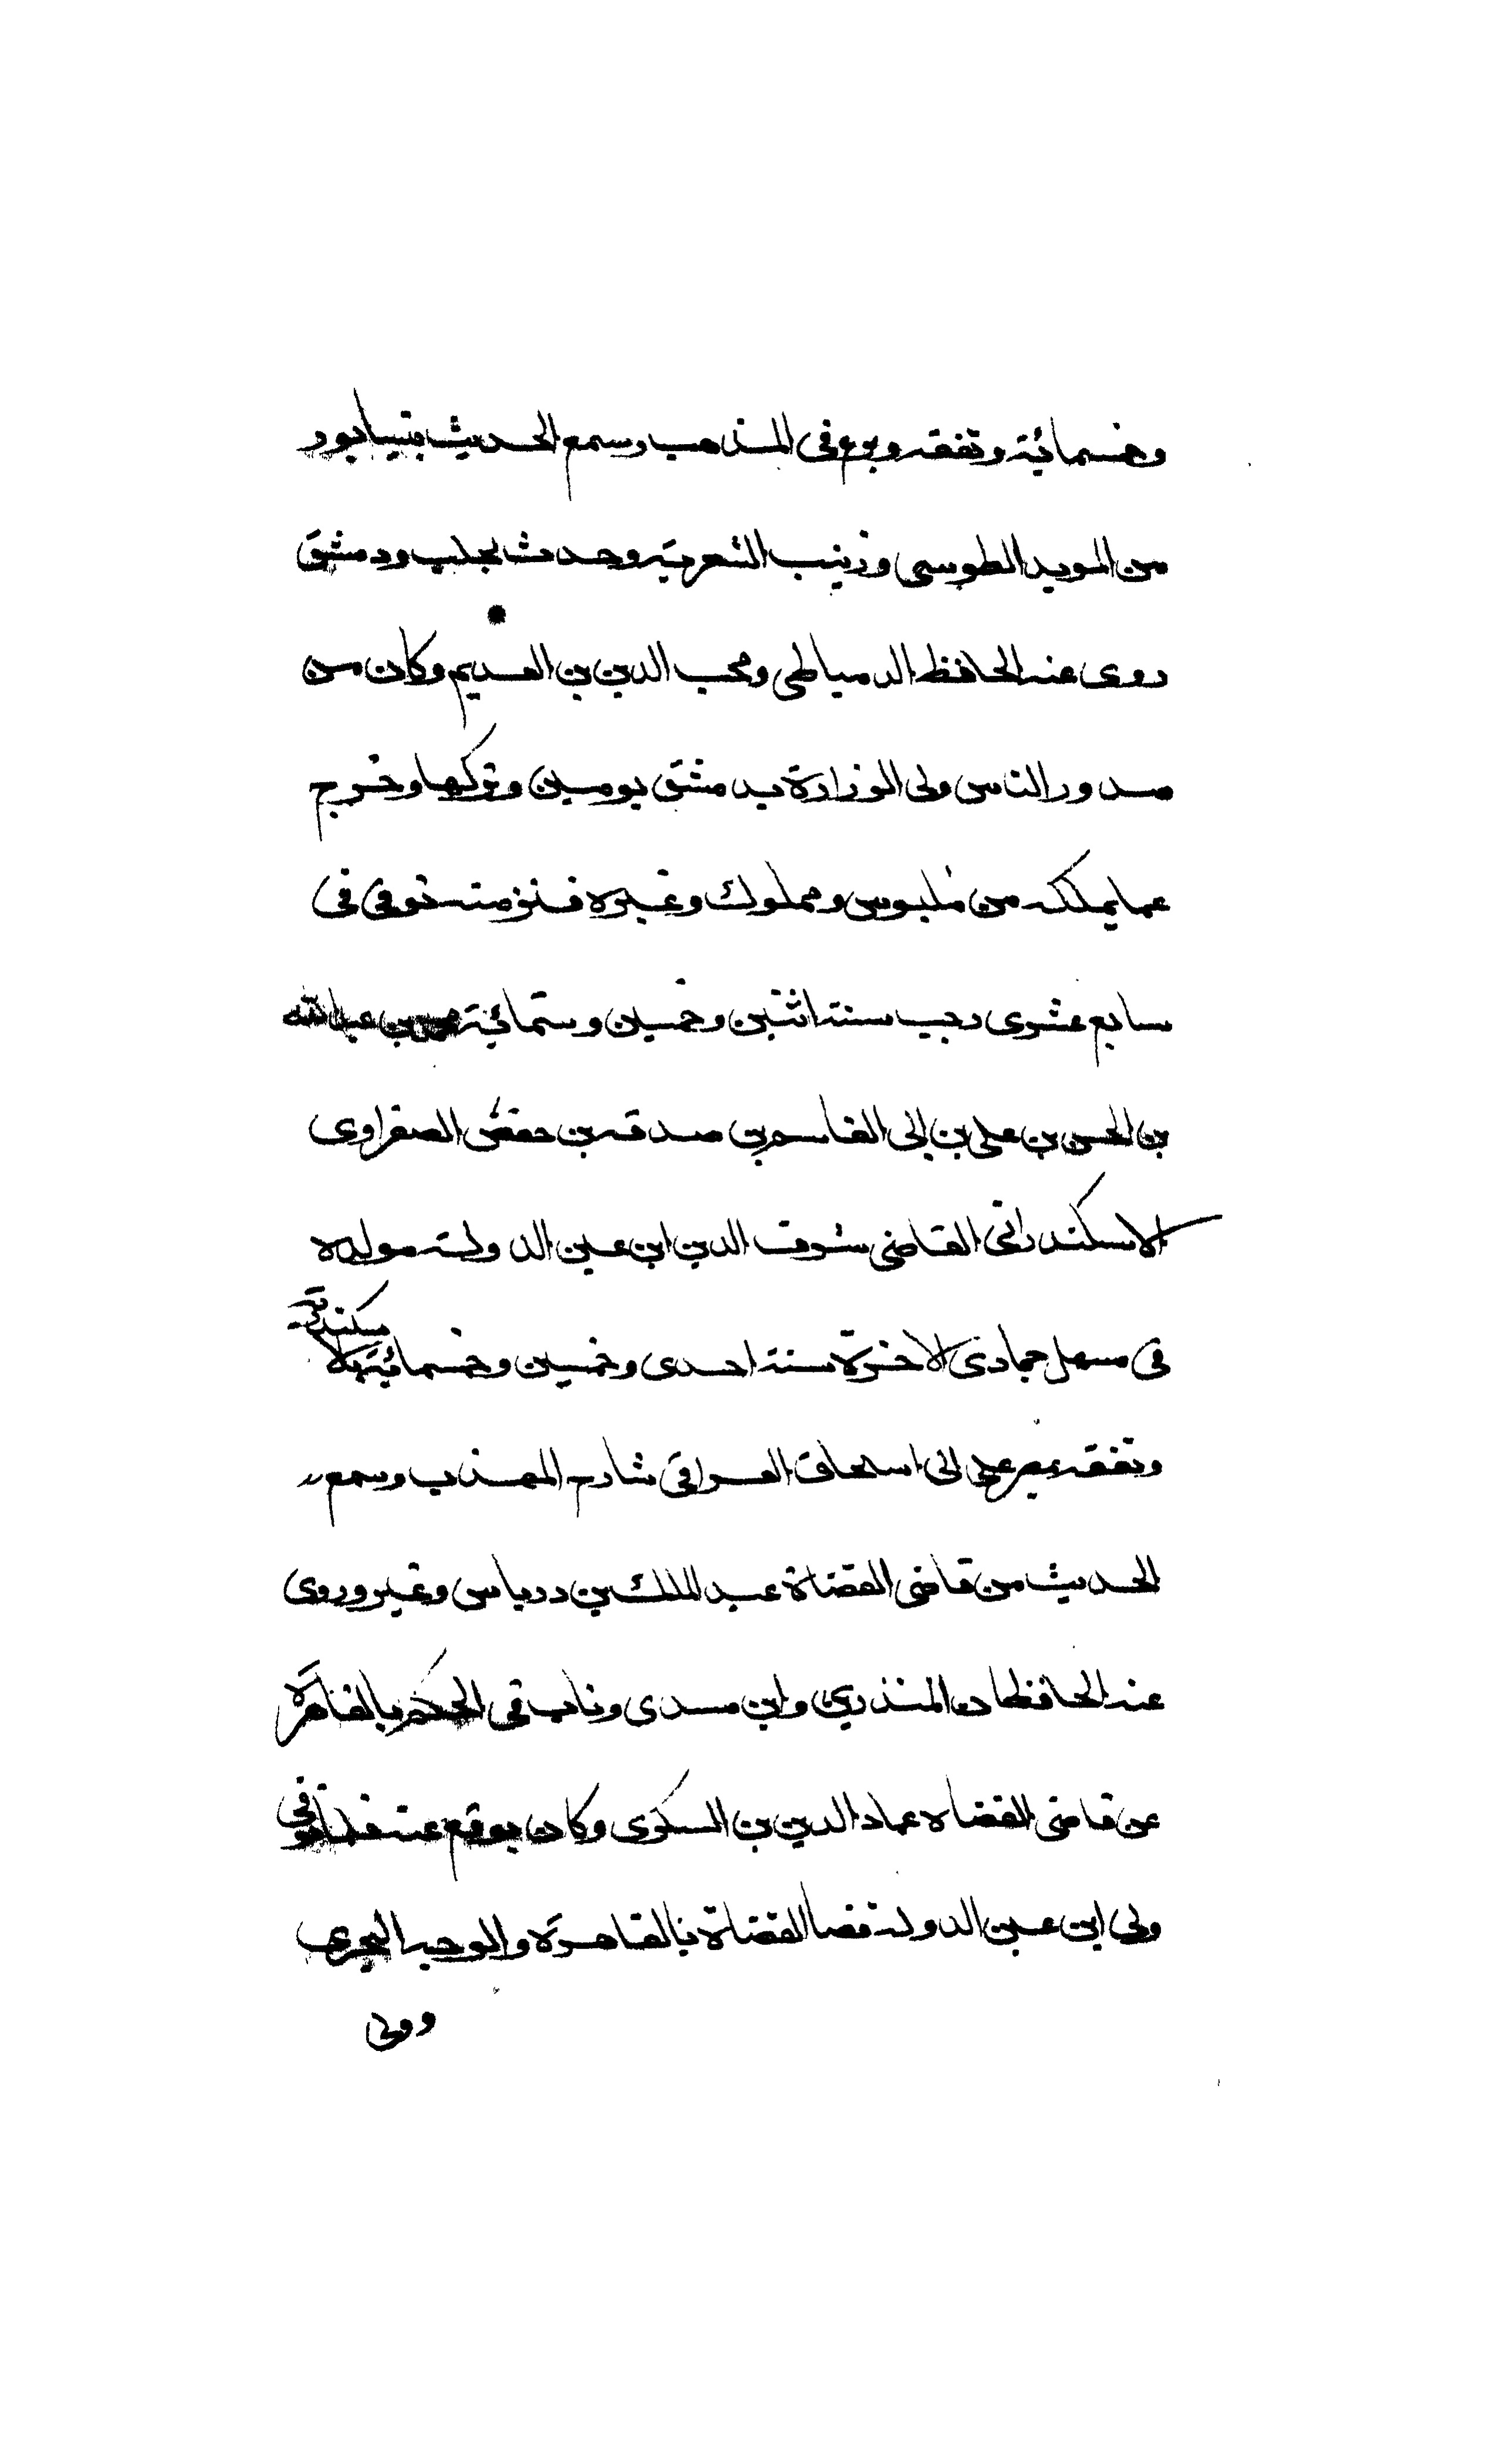 وخمسمائة وتفقه وبرع فى المذهب وسمع الحديث بنيسابور
من المويد الطوسى وزينب الشعرية وحدث بحلب ودمشق
روى عنه الحافظ الدمياطى ومحب الدين بن العديم وكان من
صدور الناس ولى الوزارة بدمشق يومين وتركها وخرج
عما يملكه من ملبوس ومملوك وغيره فتزهد توفى فى
سابع عشرى رجب سنة اثنين وخمسين وستمائة محمد بن عبد الله
بن الحسن بن على بن ابى القاسم بن صدقه بن حفص الصفراوى
الاسكندرانى القاضى شرف الدين ابن عين الدولة مولده
فى مستهل جمادى الاخرة سنة احدى وخمسين وخمسمائة بالاسكندرية
وتفقه بمصر على ابى اسحاق العراقى شارح المهذب وسمع
الحديث من قاضى القضاة عبد الملك بن درباس وغيره وروى
عنه الحافظان المنذرى وابن مسدى وناب فى الحكم بالقاهرة
عن قاضى القضاه عماد الدين بن السكرى وكان يوقع عنه فلما توفى
ولى ابن عين الدولة قضا القضاة بالقاهرة والوجه البحرى
وولى